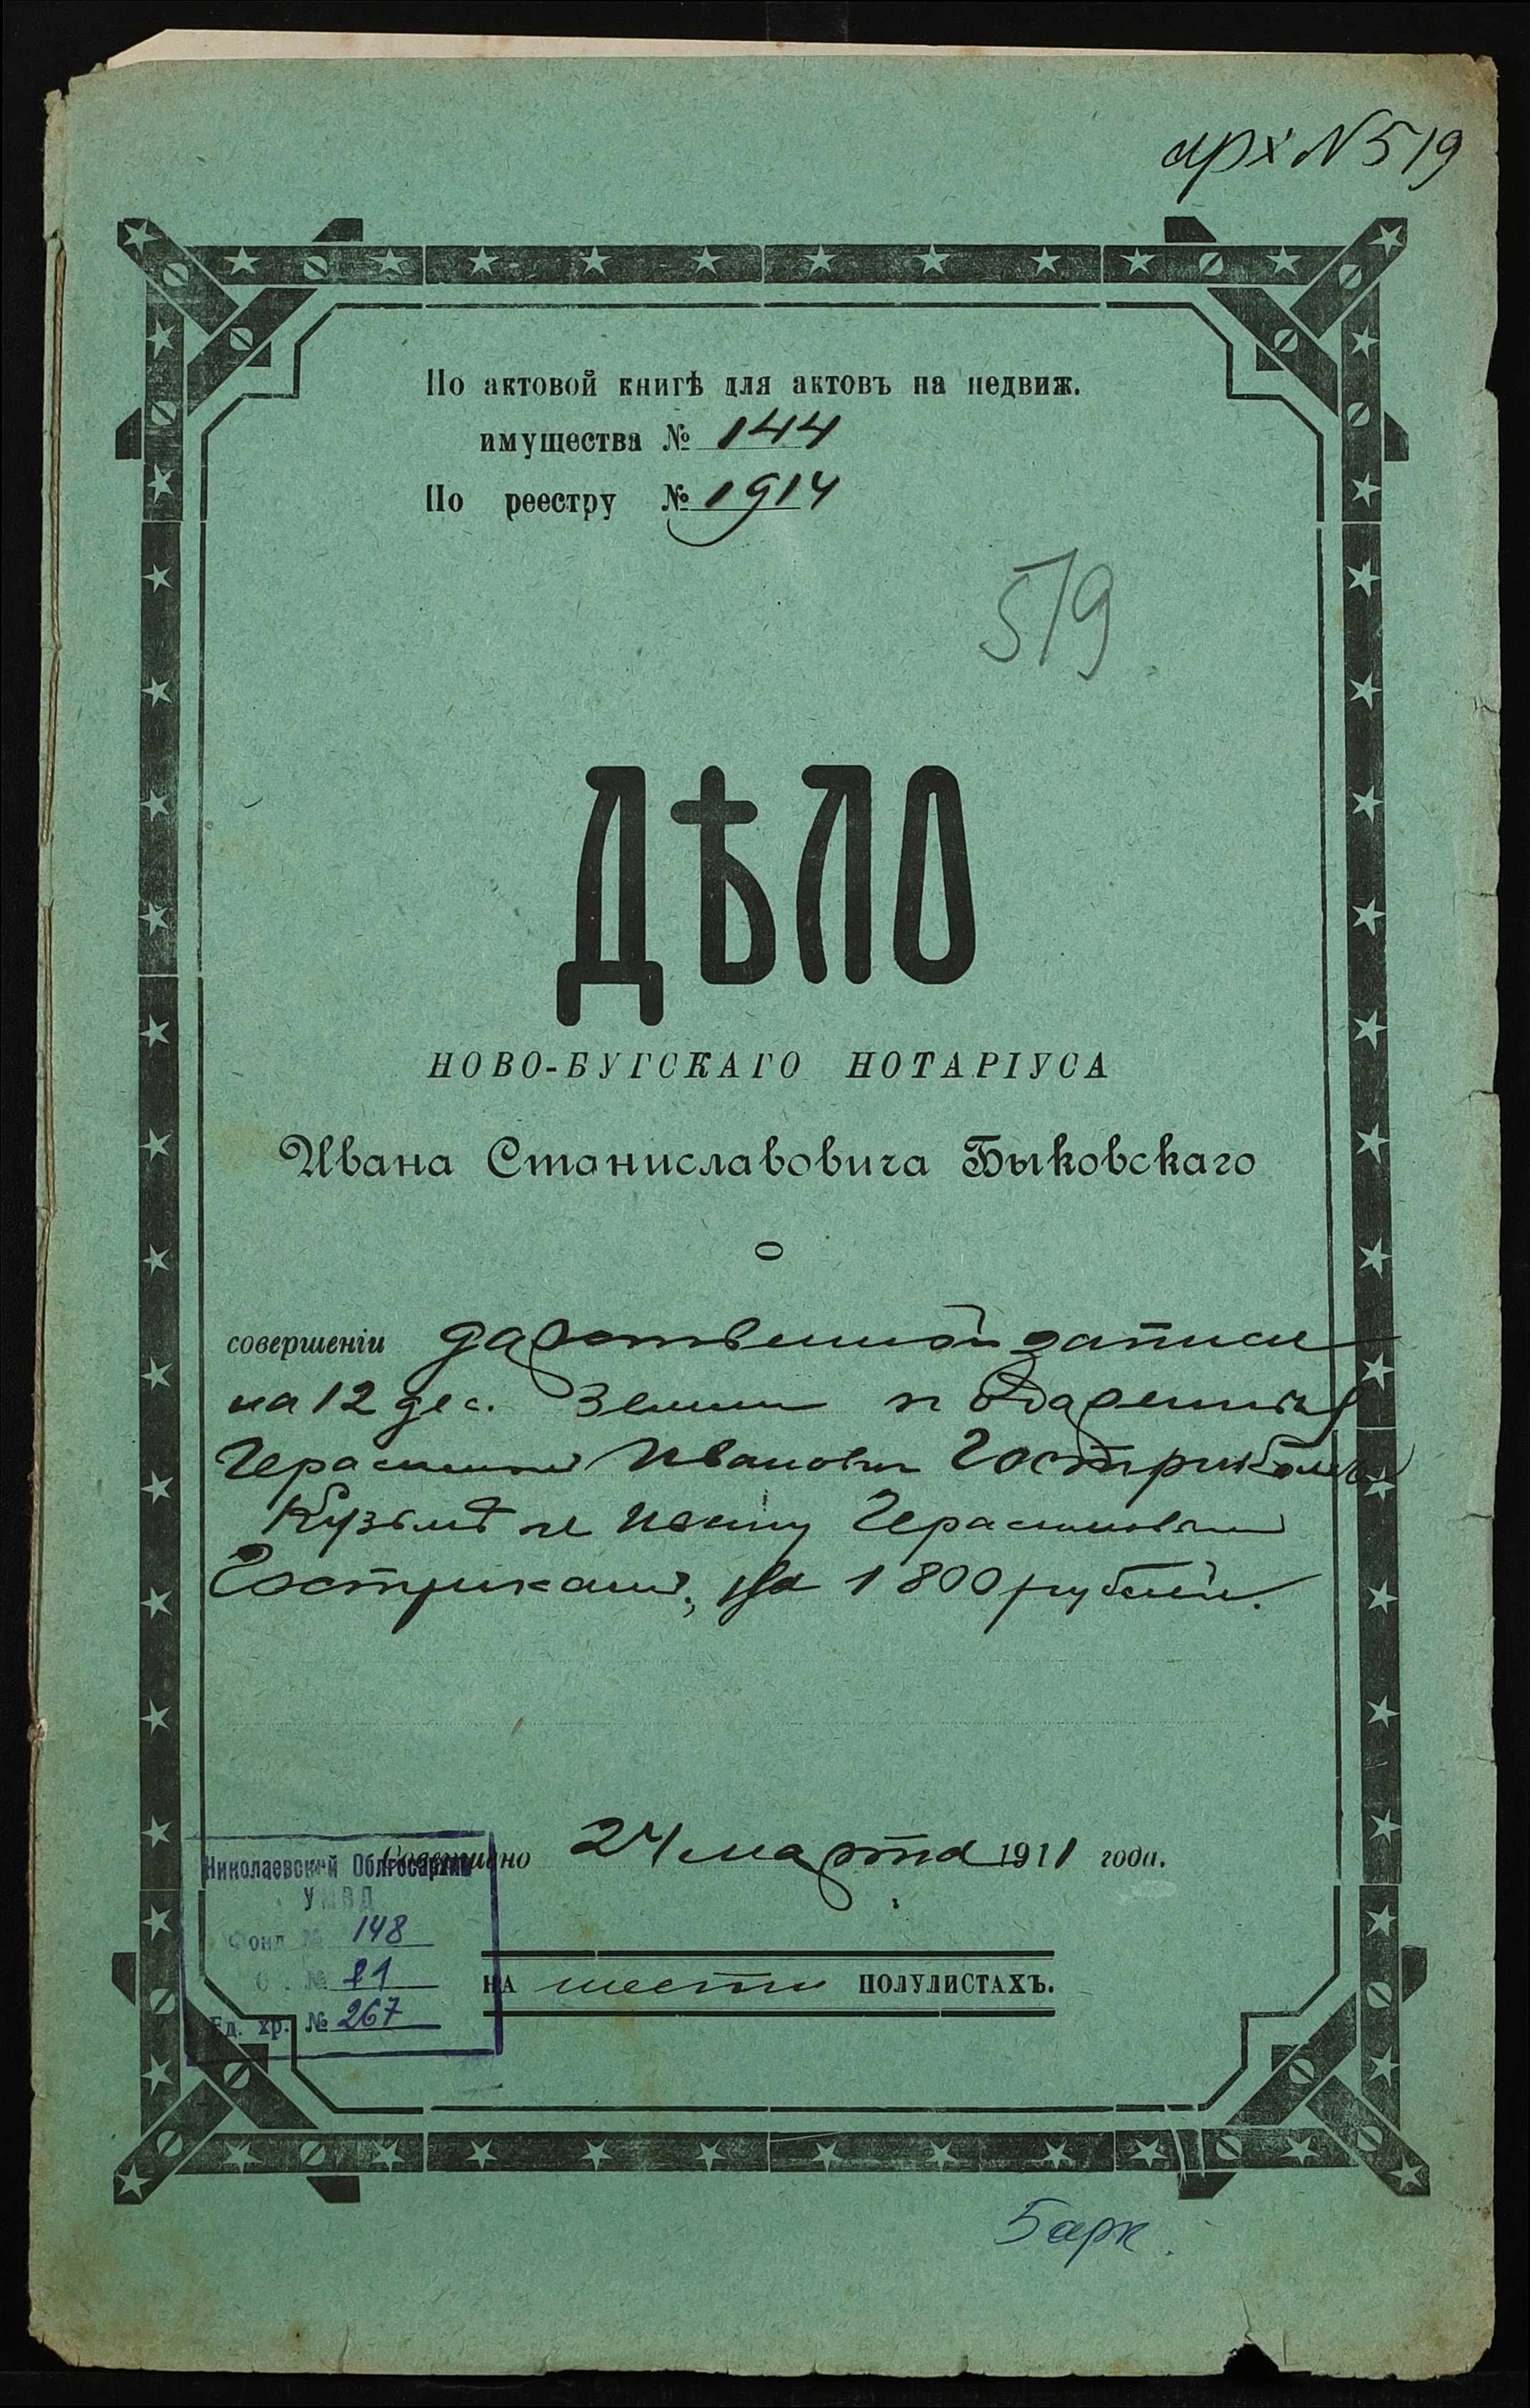 арх N 519
По актовой книгѣ для актовъ на недвиж.
имущества № 144
По реестру № 1914
519
ДѢЛО
НОВО-БУГСКАГО НОТАРІУСА
Ивана Станиславовича Быковскаго
о
совершеніи дарственной записи
на 12 дес. земли
Герасимомъ Ивановымъ
Кузьмѣ и Герасимовымъ
Гострикамъ, на 1800 рублей.
Совершено 24 марта 1911 года.
Николаевский Облгосархив
УМВД
Фонд № 148
О . № 1
Ед. хр. № 267
НА шести ПОЛУЛИСТАХЪ.
5 арк.